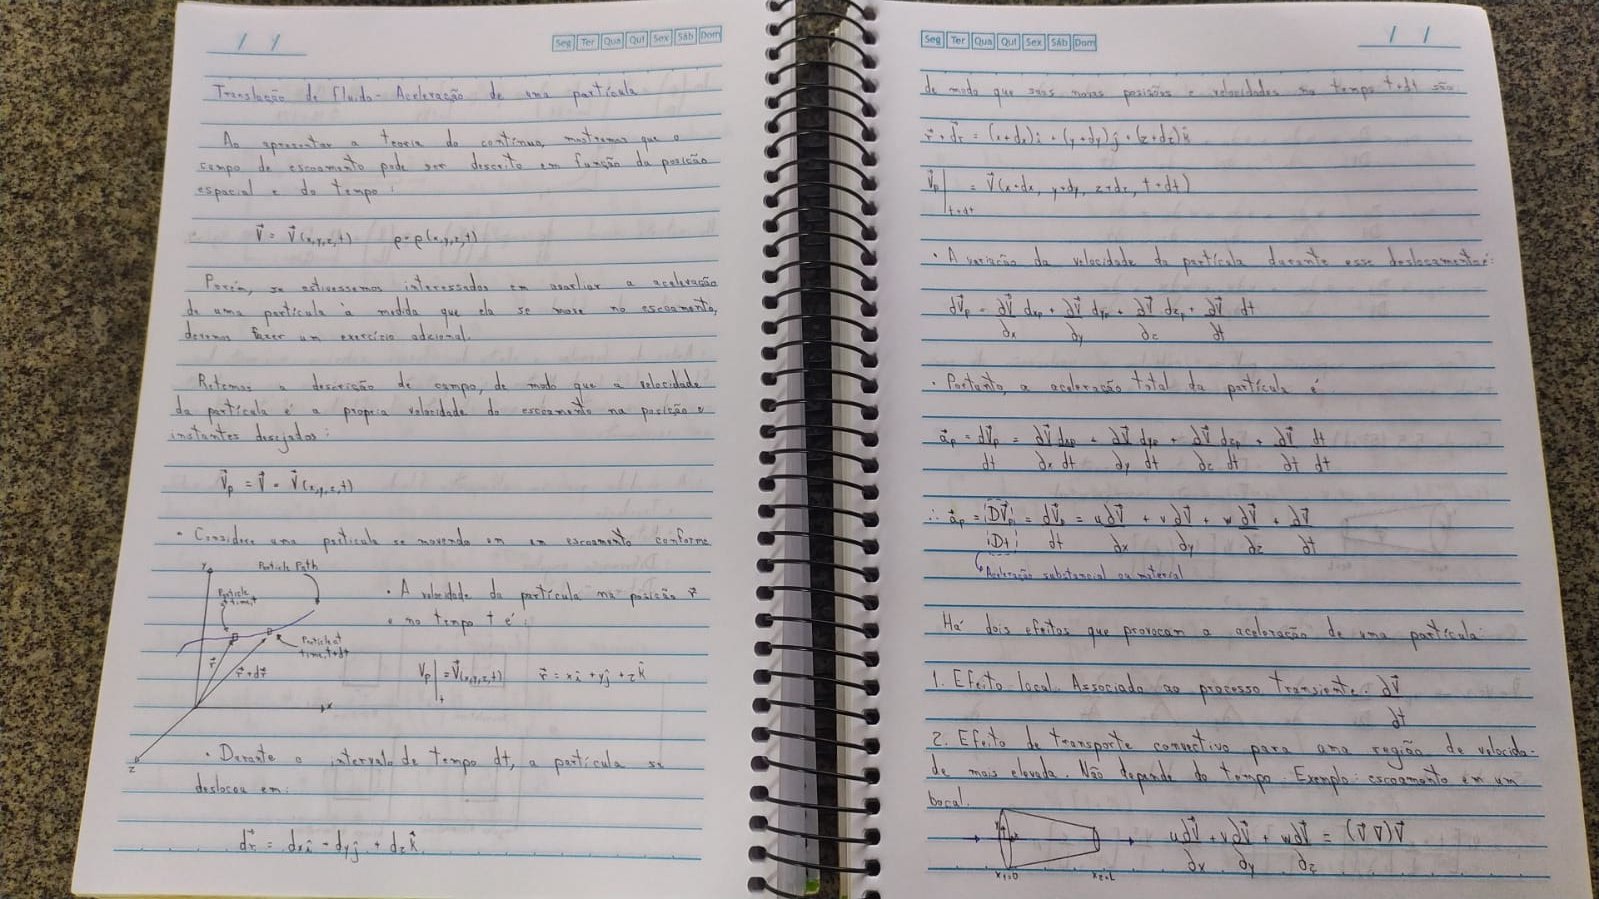 Seg Ter Qua Qui Sex Sáb Dom
Translação de fluido - Aceleração de uma partícula
Ao apresentar a teoria do contínuo, mostramos que o
campo de escoamento pode ser descrito em função da posição
espacial e do tempo:
V⃗ = V⃗(x,y,z,t) ρ = ρ(x,y,z,t)
Porém, se estivessemos interessados em avarliar a aceleração
de uma partícula à medida que ela se move no escoamento,
devemos fazer um exercício adicional.
a descrição de campo, de modo que a velocidade
da partícula é a propria velocidade do escoamento na posição e
instantes desejados:
V⃗p = V⃗ = V⃗(x,y,z,t)
• Considere uma partícula se movendo em um escoamento conforme
y
Particle Path
Particle
at time, t
Particle at
time, t+dt
r⃗
r⃗+dr⃗
x
z
• A velocidade da partícula na posição r⃗
e no tempo t é:
Vp|t = V⃗(x,y,z,t) r⃗ = xî + yĵ + zk̂
• Durante o intervalo de tempo dt, a partícula se
deslocou em:
dr⃗ = dxî + dyĵ + dzk̂
Seg Ter Qua Qui Sex Sáb Dom
de modo que suas novas posições e velocidades no tempo t+dt são
r⃗ + dr⃗ = (x+dx)î + (y+dy)ĵ + (z+dz)k̂
V⃗p|t+dt = V⃗(x+dx, y+dy, z+dz, t+dt)
• A variação da velocidade da partícula durante esse deslocamento é:
dV⃗p = ∂V⃗/∂x dxp + ∂V⃗/∂y dyp + ∂V⃗/∂z dzp + ∂V⃗/∂t dt
• Portanto, a aceleração total da partícula é
a⃗p = dV⃗p/dt = ∂V⃗/∂x dxp/dt + ∂V⃗/∂y dyp/dt + ∂V⃗/∂z dzp/dt + ∂V⃗/∂t dt/dt
∴ a⃗p = DV⃗p/Dt = dV⃗p/dt = u∂V⃗/∂x + v∂V⃗/∂y + w∂V⃗/∂z + ∂V⃗/∂t
Aceleração substancial ou material
Há dois efeitos que provocam a aceleração de uma partícula:
1. Efeito local. Associado ao processo transiente. ∂V⃗/∂t
2. Efeito de transporte convectivo para uma região de velocida-
de mais elevada. Não depende do tempo. Exemplo: escoamento em um
bocal.
x1=0
x2=L
u∂V⃗/∂x + v∂V⃗/∂y + w∂V⃗/∂z = (V⃗ ∇)V⃗